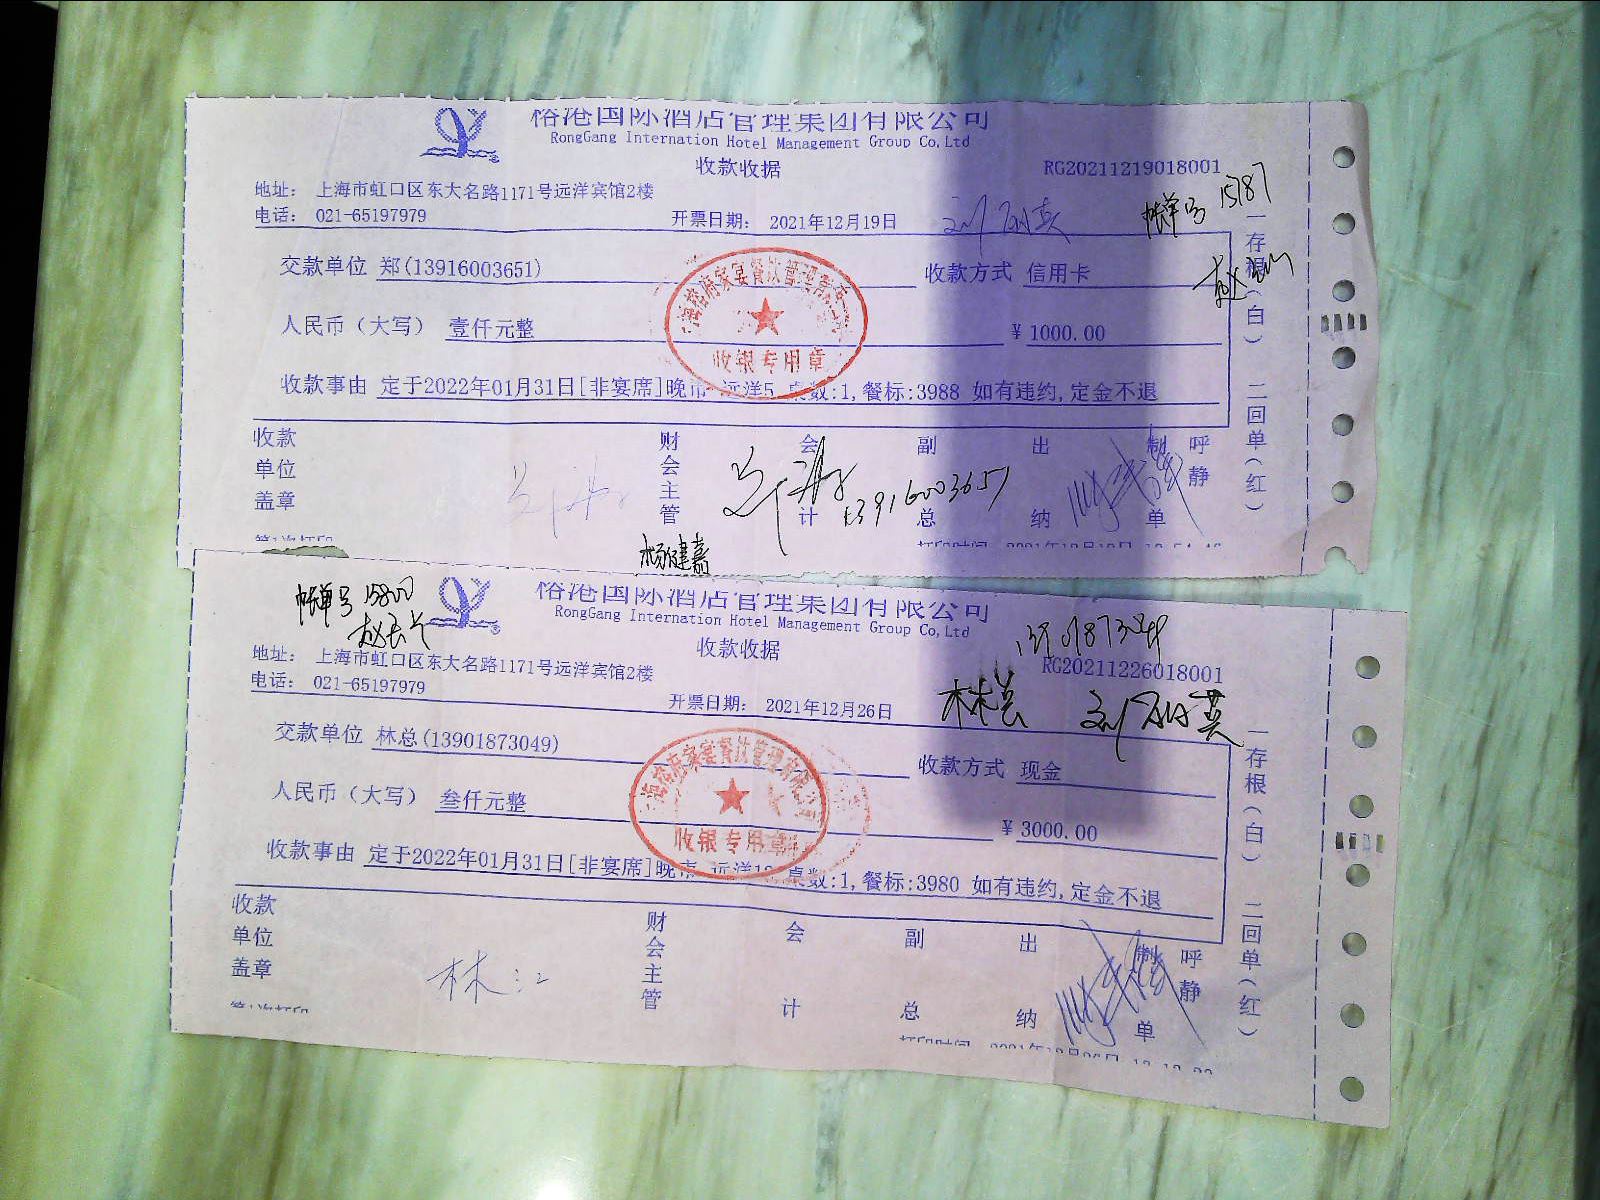 榕港国际酒店管理集团有限公司
RongGang Internation Hotel Management Group Co,Ltd
收款收据
RG20211219018001
地址： 上海市虹口区东大名路1171号远洋宾馆2楼
帐单号 15787
电话： 021-65197979
开票日期： 2021年12月19日
交款单位 郑(13916003651)
收款方式 信用卡
人民币（大写） 壹仟元整
¥ 1000.00
收款事由 定于2022年01月31日[非宴席]晚市 远洋5 桌数:1,餐标:3988 如有违约,定金不退
一存根(白) 二回单(红)
收银专用章
收款单位盖章
财会主管
会计
副总
出纳
制单
呼静
13916003651
杨健嘉
帐单号 15800
榕港国际酒店管理集团有限公司
RongGang Internation Hotel Management Group Co,Ltd
收款收据
RG20211226018001
地址： 上海市虹口区东大名路1171号远洋宾馆2楼
电话： 021-65197979
开票日期： 2021年12月26日
交款单位 林总(13901873049)
收款方式 现金
人民币（大写） 叁仟元整
¥ 3000.00
收款事由 定于2022年01月31日[非宴席]晚市 远洋 桌数:1,餐标:3980 如有违约,定金不退
一存根(白) 二回单(红)
收银专用章
收款单位盖章
林江
财会主管
会计
副总
出纳
制单
呼静